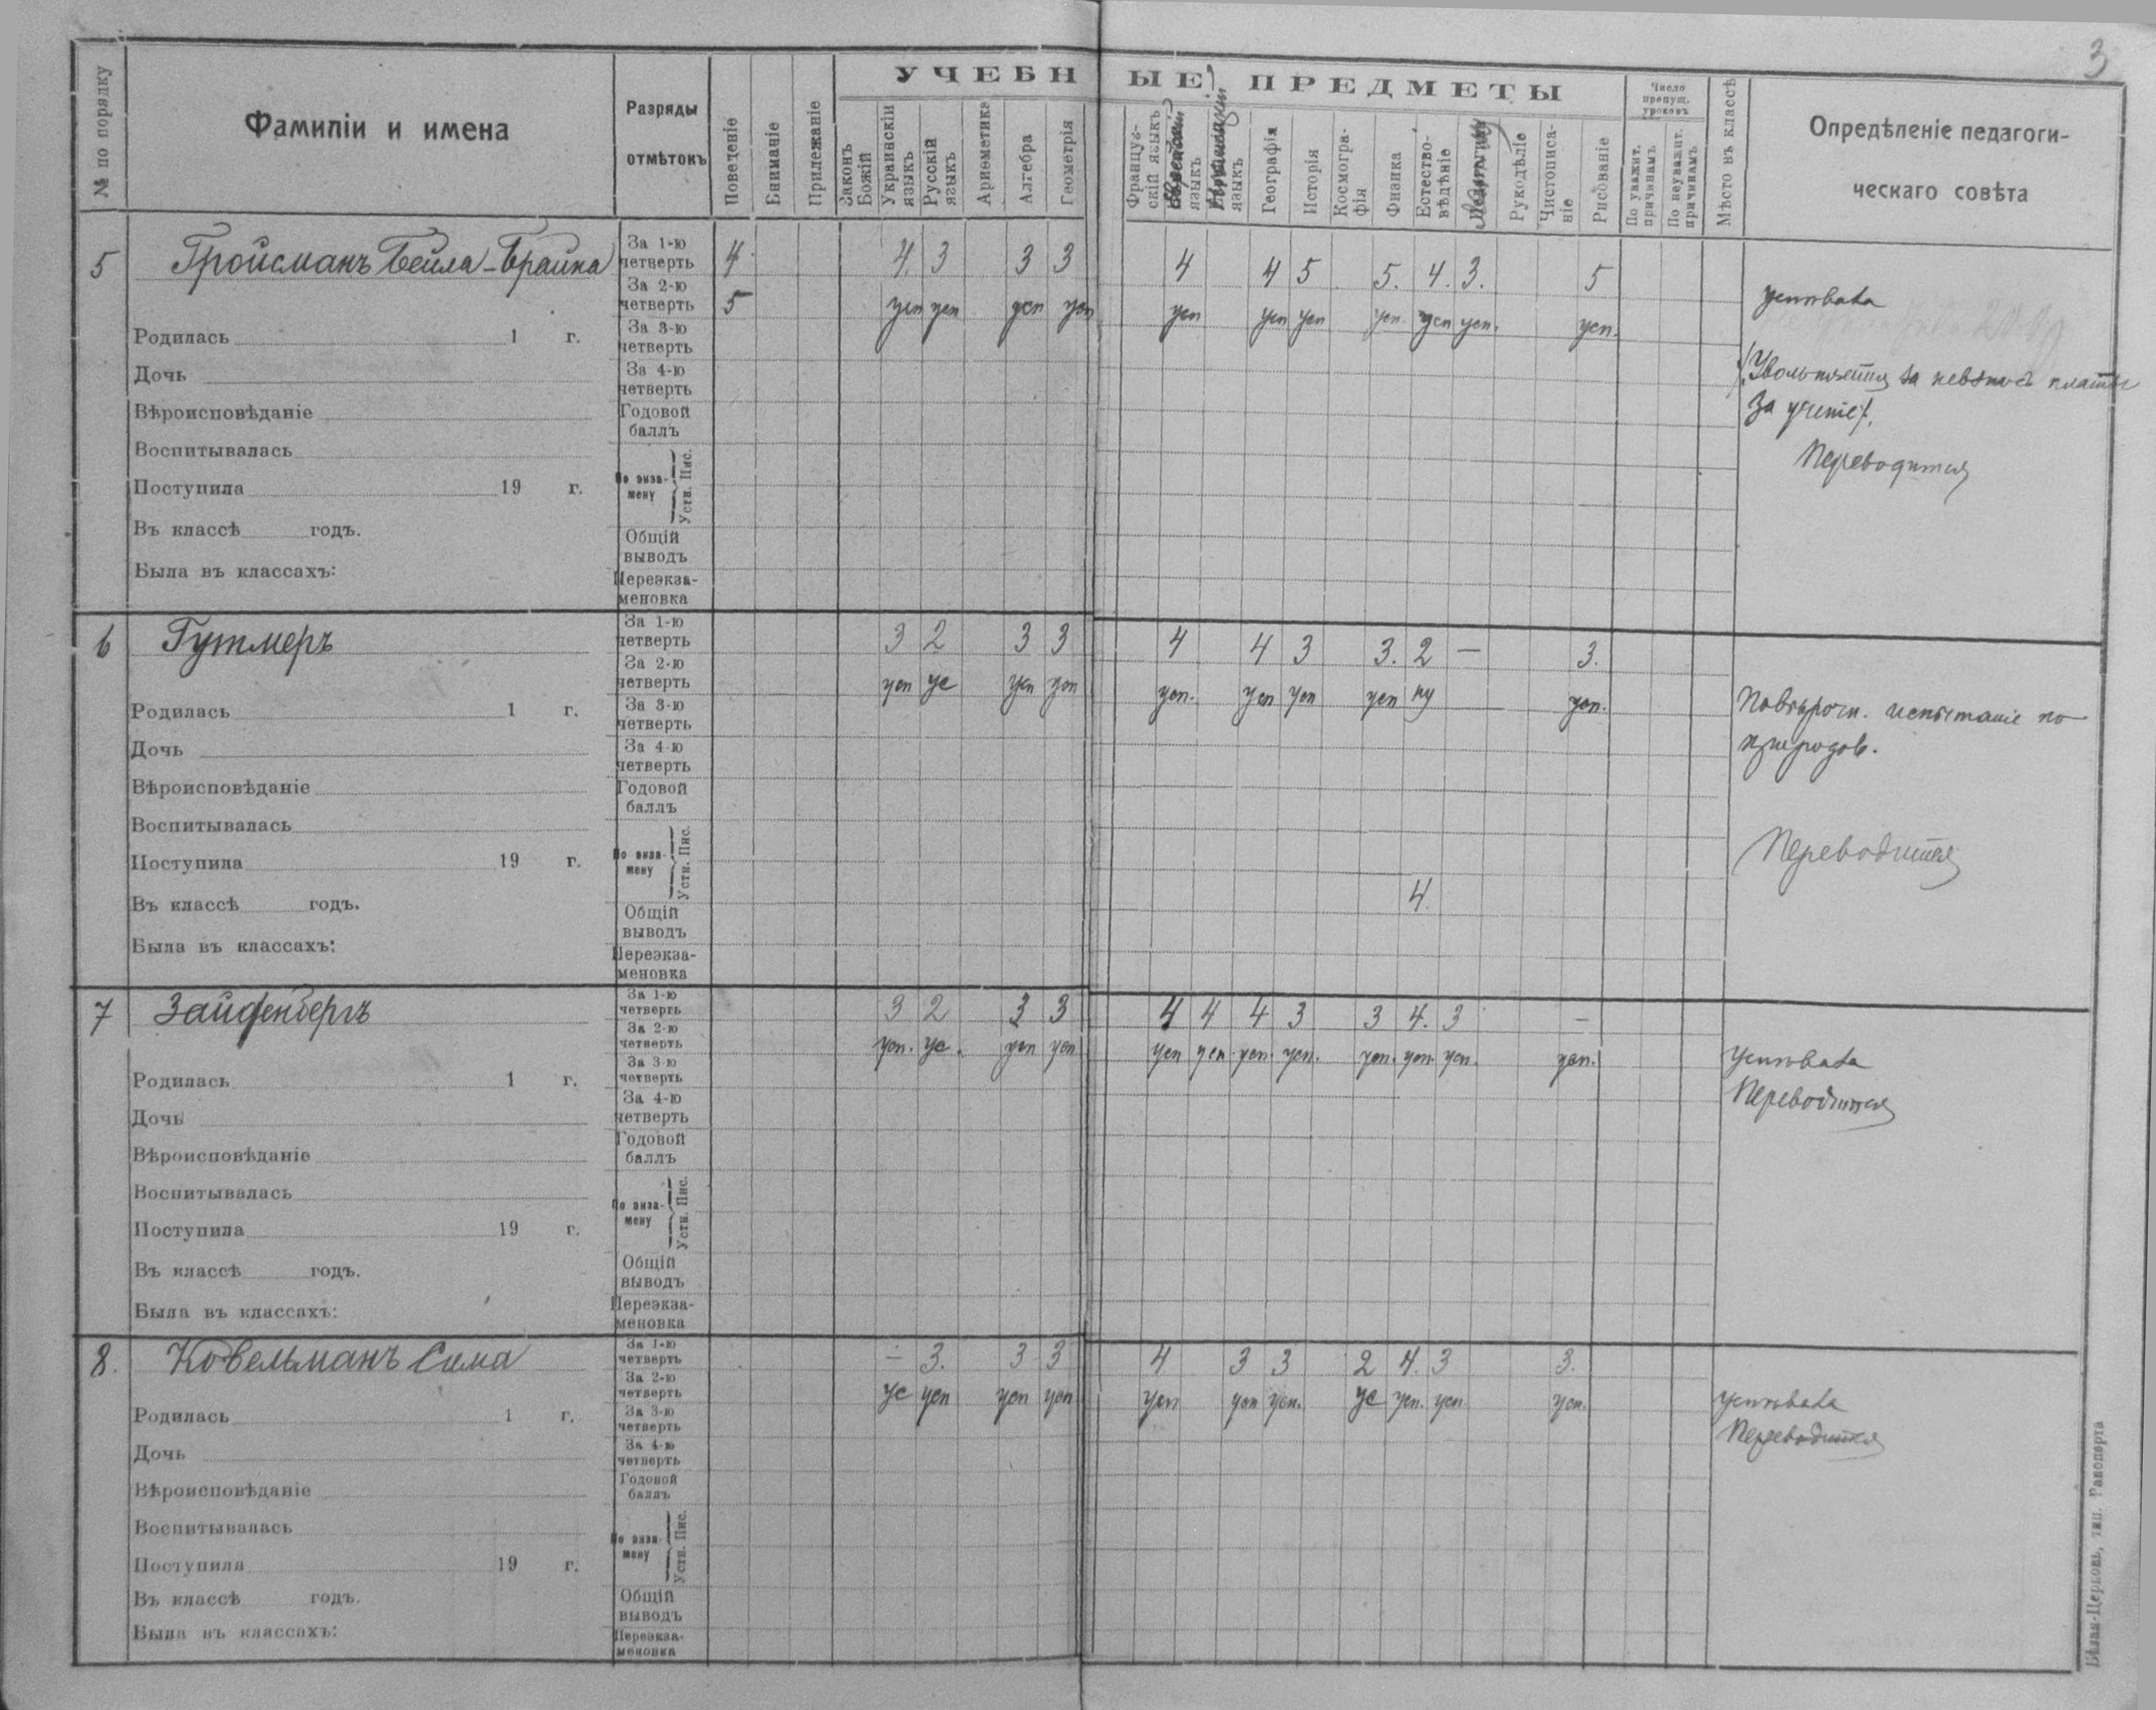 3
УЧЕБНЫЕ ПРЕДМЕТЫ
№ по порядку
Фамиліи и имена
Разряды отмѣтокъ
Поведеніе
Вниманіе
Прилежаніе
Законъ Божій
Украинскій языкъ
Русскій языкъ
Ариѳметика
Алгебра
Геометрія
Француз-скій языкъ
языкъ
языкъ
Географія
Исторія
Космогра-фія
Физика
Естество-вѣдѣніе
Рукодѣліе
Чистописа-ніе
Рисованіе
Число пропущ. уроковъ
По уважит. причинамъ
По неуважит. причинамъ
Мѣсто въ классѣ
Опредѣленіе педагоги-
ческаго совѣта
5 Гройсманъ Бейла-Брайна
За 1-ю четверть 4 4 3 3 3 4 4 5 5. 4. 3. 5
За 2-ю четверть 5 усп усп усп усп усп усп усп усп усп усп. усп.
успѣвала
Родилась 1 г.
За 3-ю четверть
Дочь
За 4-ю четверть
/Увольняется за невзносъ платы
за ученіе/.
Вѣроисповѣданіе
Годовой баллъ
Воспитывалась
Переводится
Поступила 19 г.
По экза-мену Устн. Пис.
Въ классѣ годъ.
Общій выводъ
Была въ классахъ:
Переэкза-меновка
6 Гутмеръ
За 1-ю четверть 3 2 3 3 4 4 3 3. 2 — 3.
За 2-ю четверть усп ус усп усп усп. усп усп усп ну усп.
Родилась 1 г.
За 3-ю четверть
Повторочн. испытаніе по
природов.
Дочь
За 4-ю четверть
Вѣроисповѣданіе
Годовой баллъ
Воспитывалась
Переводится
Поступила 19 г.
По экза-мену Устн. Пис.
4.
Въ классѣ годъ.
Общій выводъ
Была въ классахъ:
Переэкза-меновка
7 Зайфенбергъ
За 1-ю четверть 3 2 3 3 4 4 4 3 3 4. 3 —
За 2-ю четверть усп. ус. усп усп усп усп усп. усп. усп. усп. усп. усп.
Успѣвала
Переводится
Родилась 1 г.
За 3-ю четверть
Дочь
За 4-ю четверть
Вѣроисповѣданіе
Годовой баллъ
Воспитывалась
Поступила 19 г.
По экза-мену Устн. Пис.
Въ классѣ годъ.
Общій выводъ
Была въ классахъ:
Переэкза-меновка
8. Ковельманъ Сима
За 1-ю четверть — 3. 3 3 4 3 3 2 4. 3 3.
За 2-ю четверть ус усп усп усп усп усп усп. ус усп. усп усп.
успѣвала
Переводится
Родилась 1 г.
За 3-ю четверть
Дочь
За 4-ю четверть
Вѣроисповѣданіе
Годовой баллъ
Воспитывалась
Поступила 19 г.
По экза-мену Устн. Пис.
Въ классѣ годъ.
Общій выводъ
Была въ классахъ:
Переэкза-меновка
Бѣлая-Церковь, тип. Рапопорта